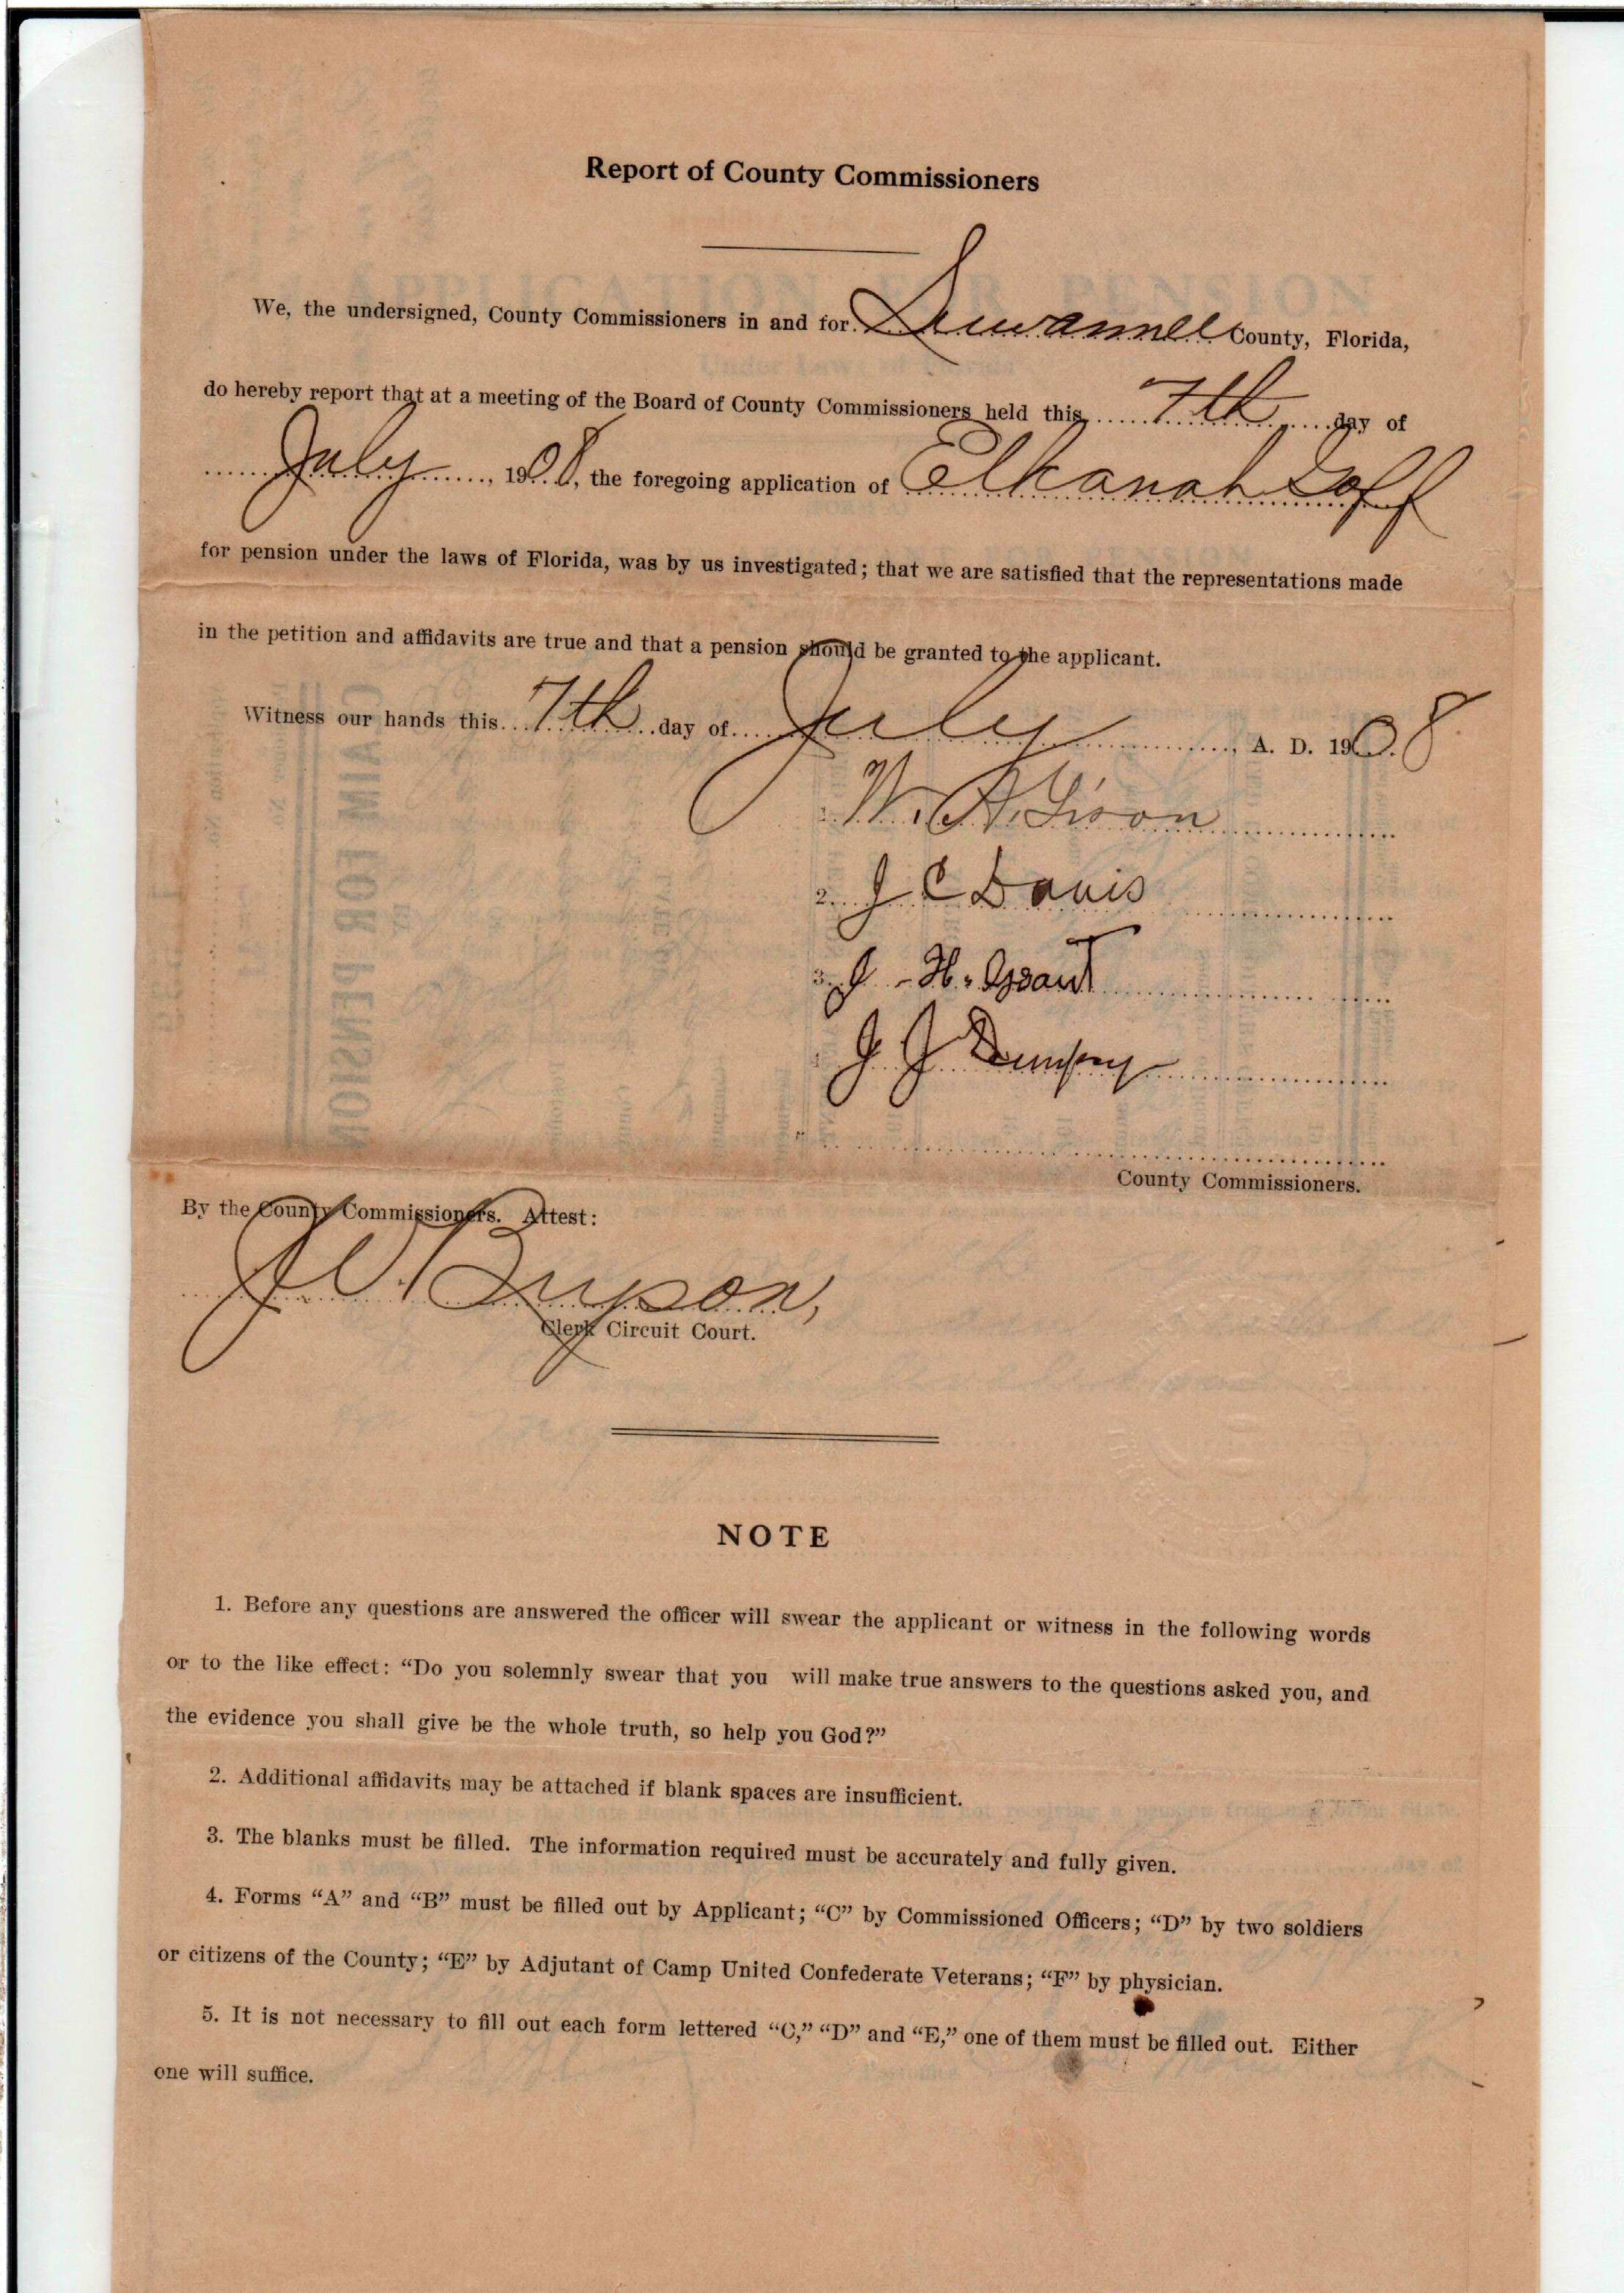 Report of County Commissioners
We, the undersigned, County Commissioners in and for Suwannee County, Florida,
do hereby report that at a meeting of the Board of County Commissioners held this 7th day of
July, 1908, the foregoing application of Elkanah Goff
for pension under the laws of Florida, was by us investigated; that we are satisfied that the representations made
in the petition and affidavits are true and that a pension should be granted to the applicant.
Witness our hands this 7th day of July, A. D. 1908
W. A.
2. J C Davis
3. J. H. Grant
J J
County Commissioners.
By the County Commissioners. Attest:
J W. Bryson,
Clerk Circuit Court.
NOTE
1. Before any questions are answered the officer will swear the applicant or witness in the following words
or to the like effect: “Do you solemnly swear that you will make true answers to the questions asked you, and
the evidence you shall give be the whole truth, so help you God?”
2. Additional affidavits may be attached if blank spaces are insufficient.
3. The blanks must be filled. The information required must be accurately and fully given.
4. Forms “A” and “B” must be filled out by Applicant; “C” by Commissioned Officers; “D” by two soldiers
or citizens of the County; “E” by Adjutant of Camp United Confederate Veterans; “F” by physician.
5. It is not necessary to fill out each form lettered “C,” “D” and “E,” one of them must be filled out. Either
one will suffice.